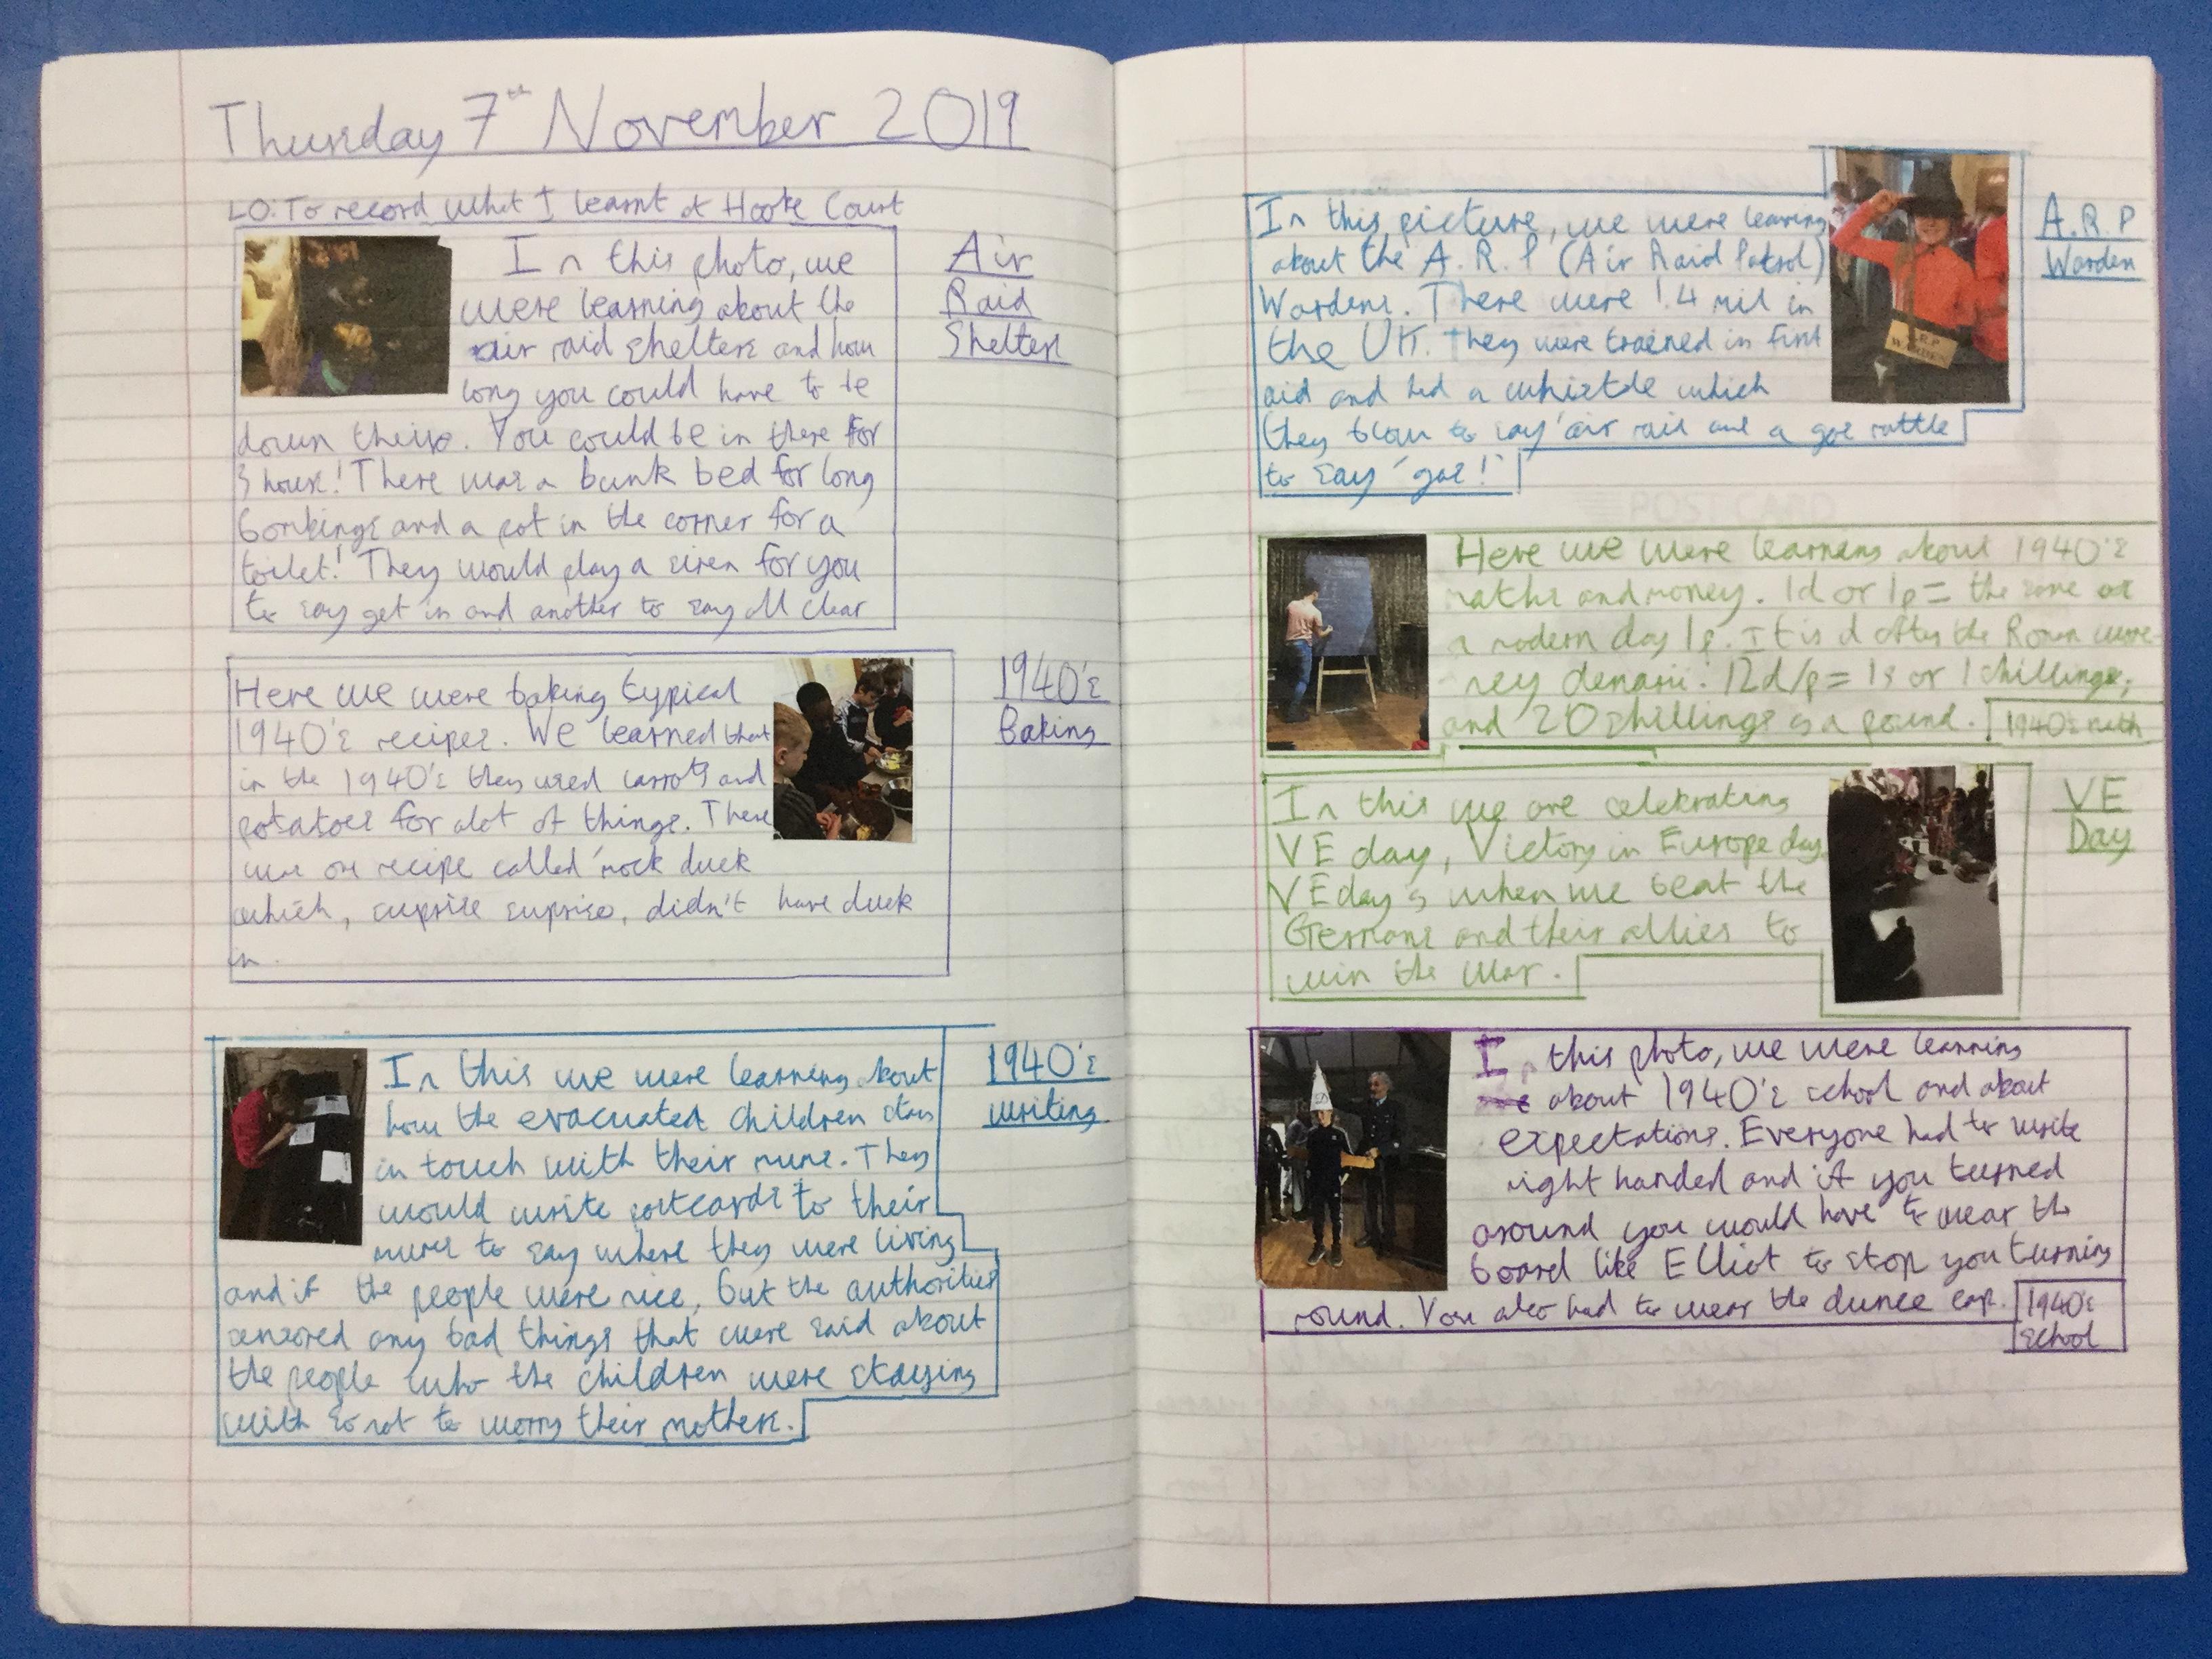 Thursday 7th November 2019
LO: To record what I learnt at Hooke Court
In this photo, we
were learning about the
air raid shelters and how
long you could have to be
down there. You could be in there for
3 hours! There was a bunk bed for long
bombings and a pot in the corner for a
toilet! They would play a siren for you
to say get in and another to say all clear
Air
Raid
Shelters
Here we were baking typical
1940's recipes. We learned that
in the 1940's they used carrots and
potatoes for alot of things. There
was on recipe called 'mock duck
which, suprise suprise, didn't have duck
in.
1940's
Baking
In this we were learning about
how the evacuated children stay
in touch with their mums. They
would write postcards to their
mums to say where they were living
and if the people were nice, but the authorities
censored any bad things that were said about
the people who the children were staying
with so not to worry their mothers.
1940's
writing
In this picture, we were learning
about the A.R.P (Air Raid Patrol)
Wardens. There were 1.4 mil in
the UK. They were trained in first
aid and had a whistle which
they blow to say 'air raid and a gas rattle
to say 'gas!'
A.R.P
Warden
A.R.P
WARDEN
POST CARD
Here we were learning about 1940's
maths and money. 1d or 1p = the same as
a modern day 1p. It is d after the Roman
denarii. 12d/p = 1s or 1 shillings,
and 20 shillings is a pound.
1940's math
In this we are celebrating
VE day, Victory in Europe day
VE day is when we beat the
Germans and their allies to
win the war.
VE
Day
In this photo, we were learning
about 1940's school and about
expectations. Everyone had to write
right handed and if you turned
around you would have to wear the
board like Elliot to stop you turning
round. You also had to wear the dunce cap.
1940's
school